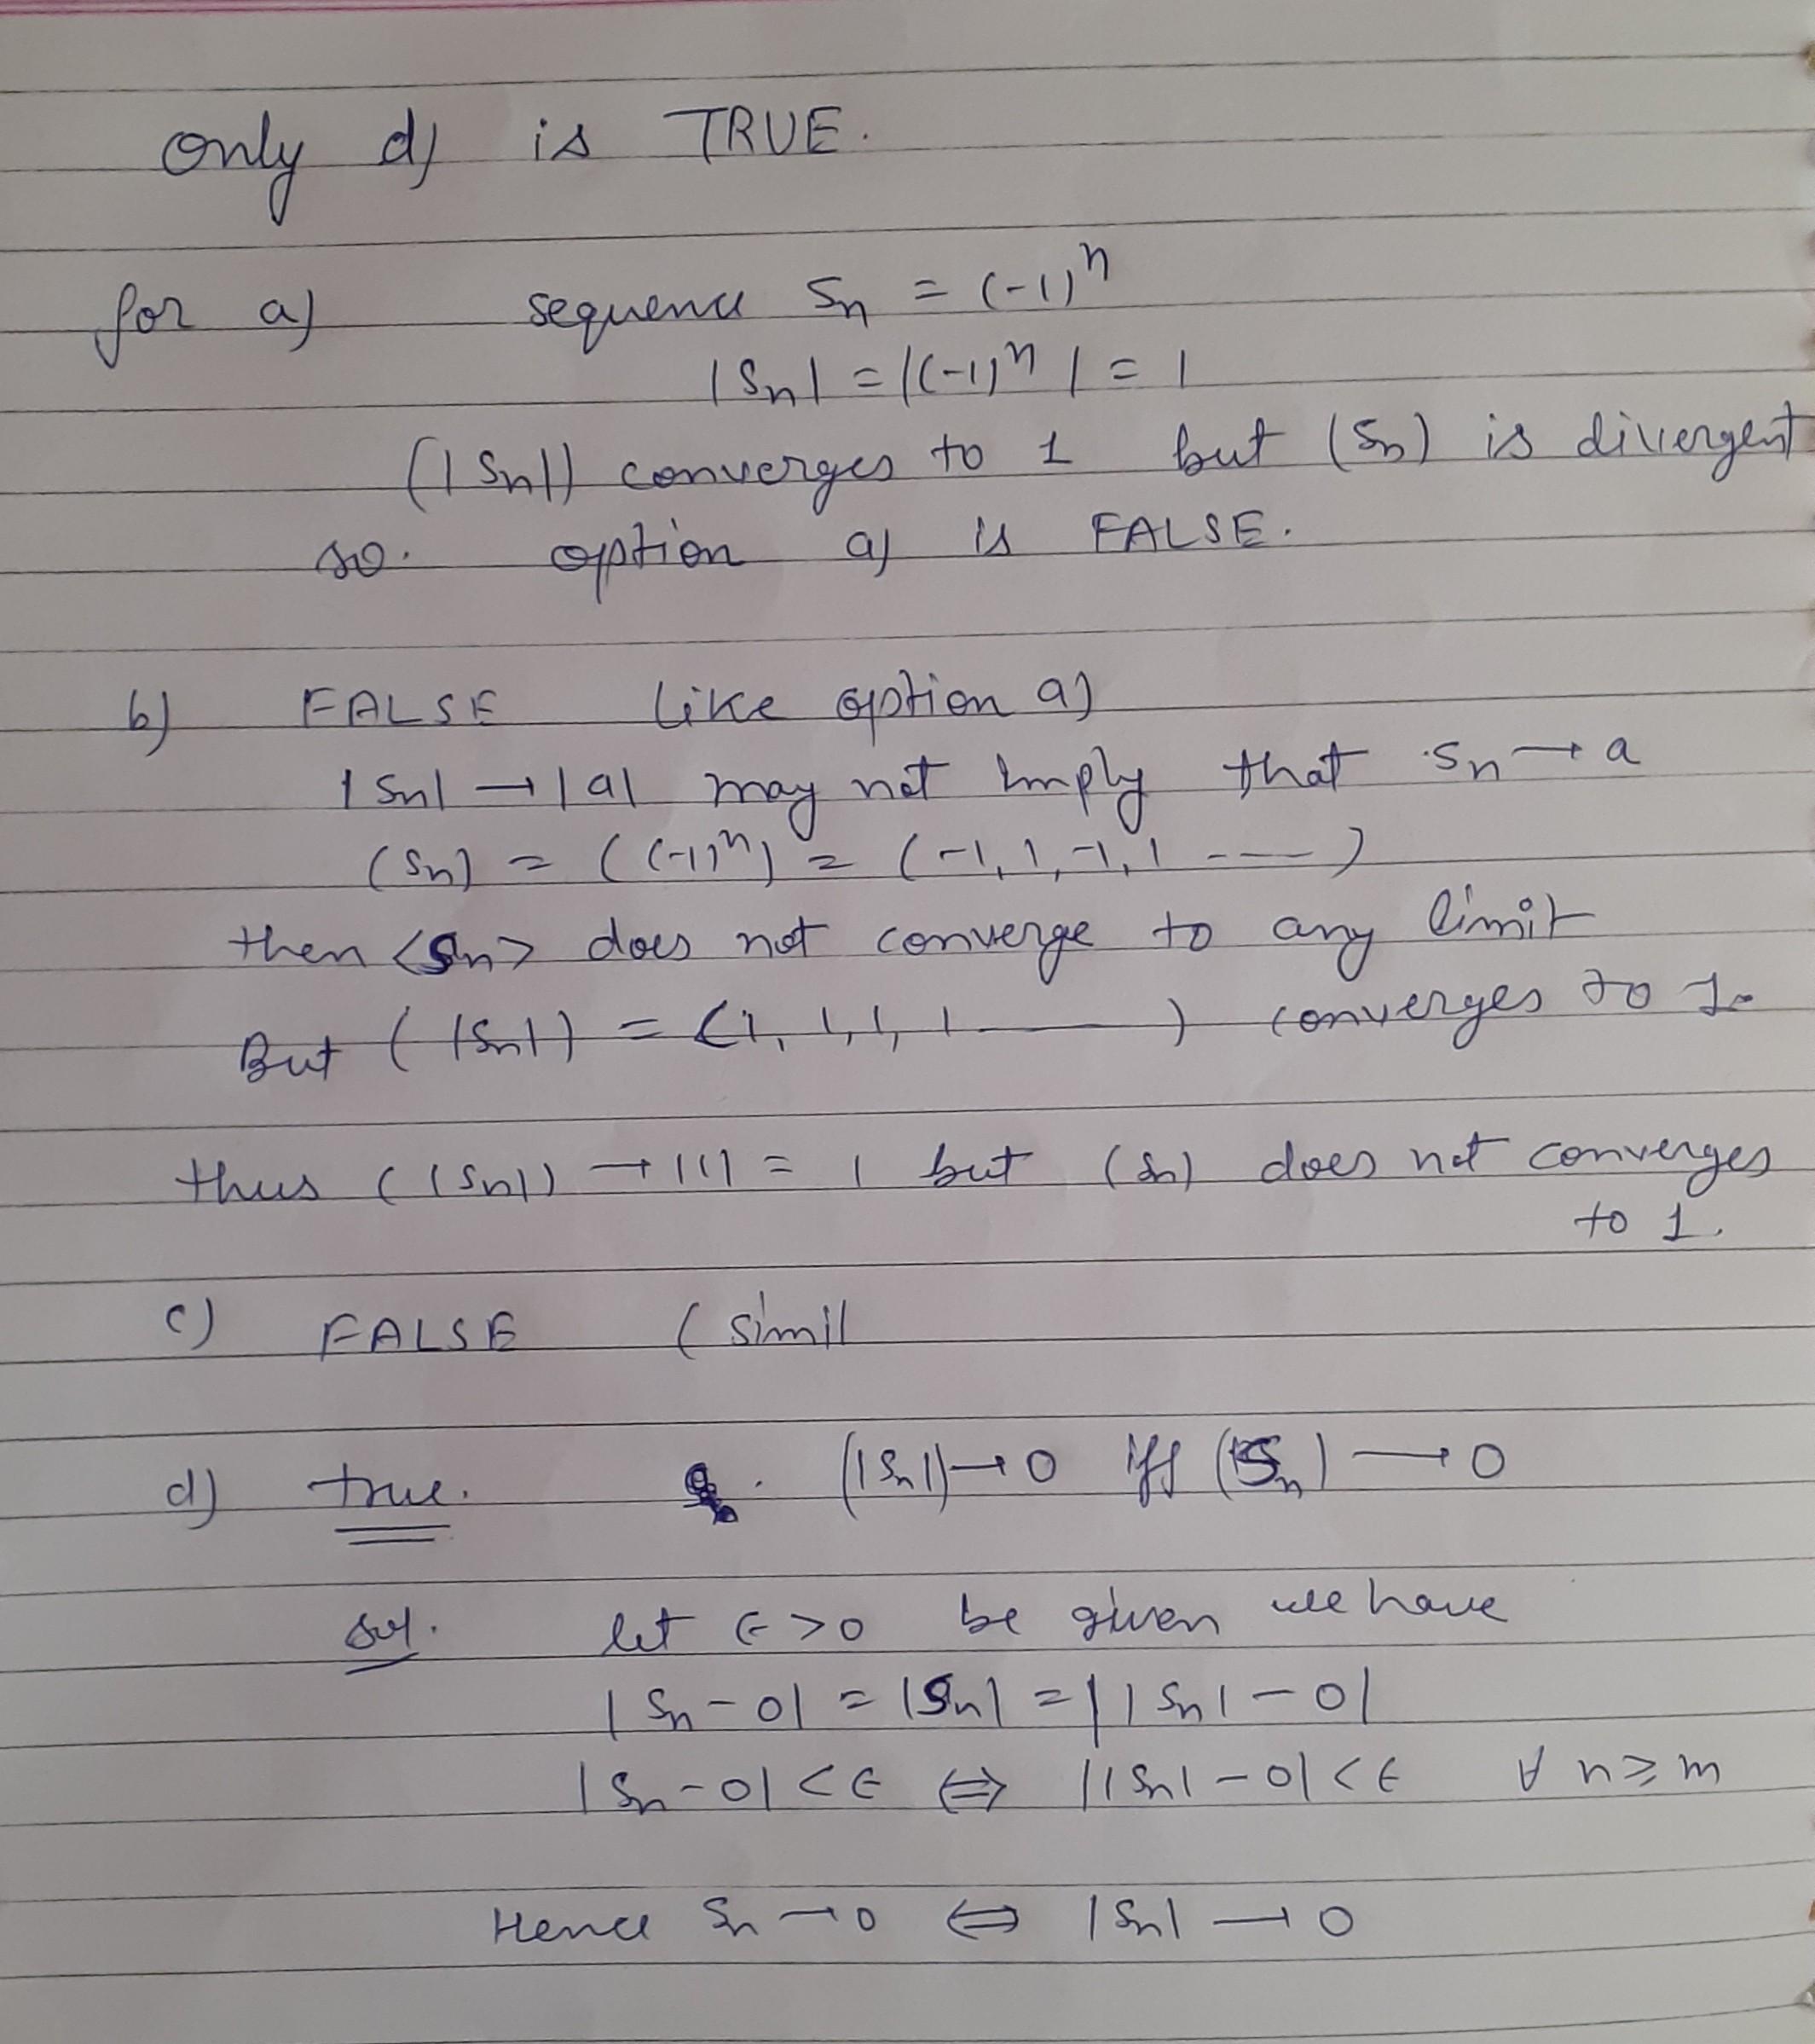 only d) is TRUE.
for a) sequence Sn = (-1)^n
|Sn| = |(-1)^n| = 1
(|Sn|) converges to 1 but (Sn) is divergent
so. option a) is FALSE.
b) FALSE like option a)
|Sn| → |a| may not imply that Sn → a
(Sn) = ((-1)^n) = (-1, 1, -1, 1 ----)
then <Sn> does not converge to any limit
But (|Sn|) = (1, 1, 1, 1 ——) converges to 1.
thus (|Sn|) → |1| = 1 but (Sn) does not converges
to 1.
c) FALSE (simil
d) true. (|Sn|) → 0 iff (Sn) → 0
sol. let ε > 0 be given we have
|Sn - 0| = |Sn| = ||Sn| - 0|
|Sn - 0| < ε ⇔ ||Sn| - 0| < ε ∀ n ≥ m
Hence Sn → 0 ⇔ |Sn| → 0